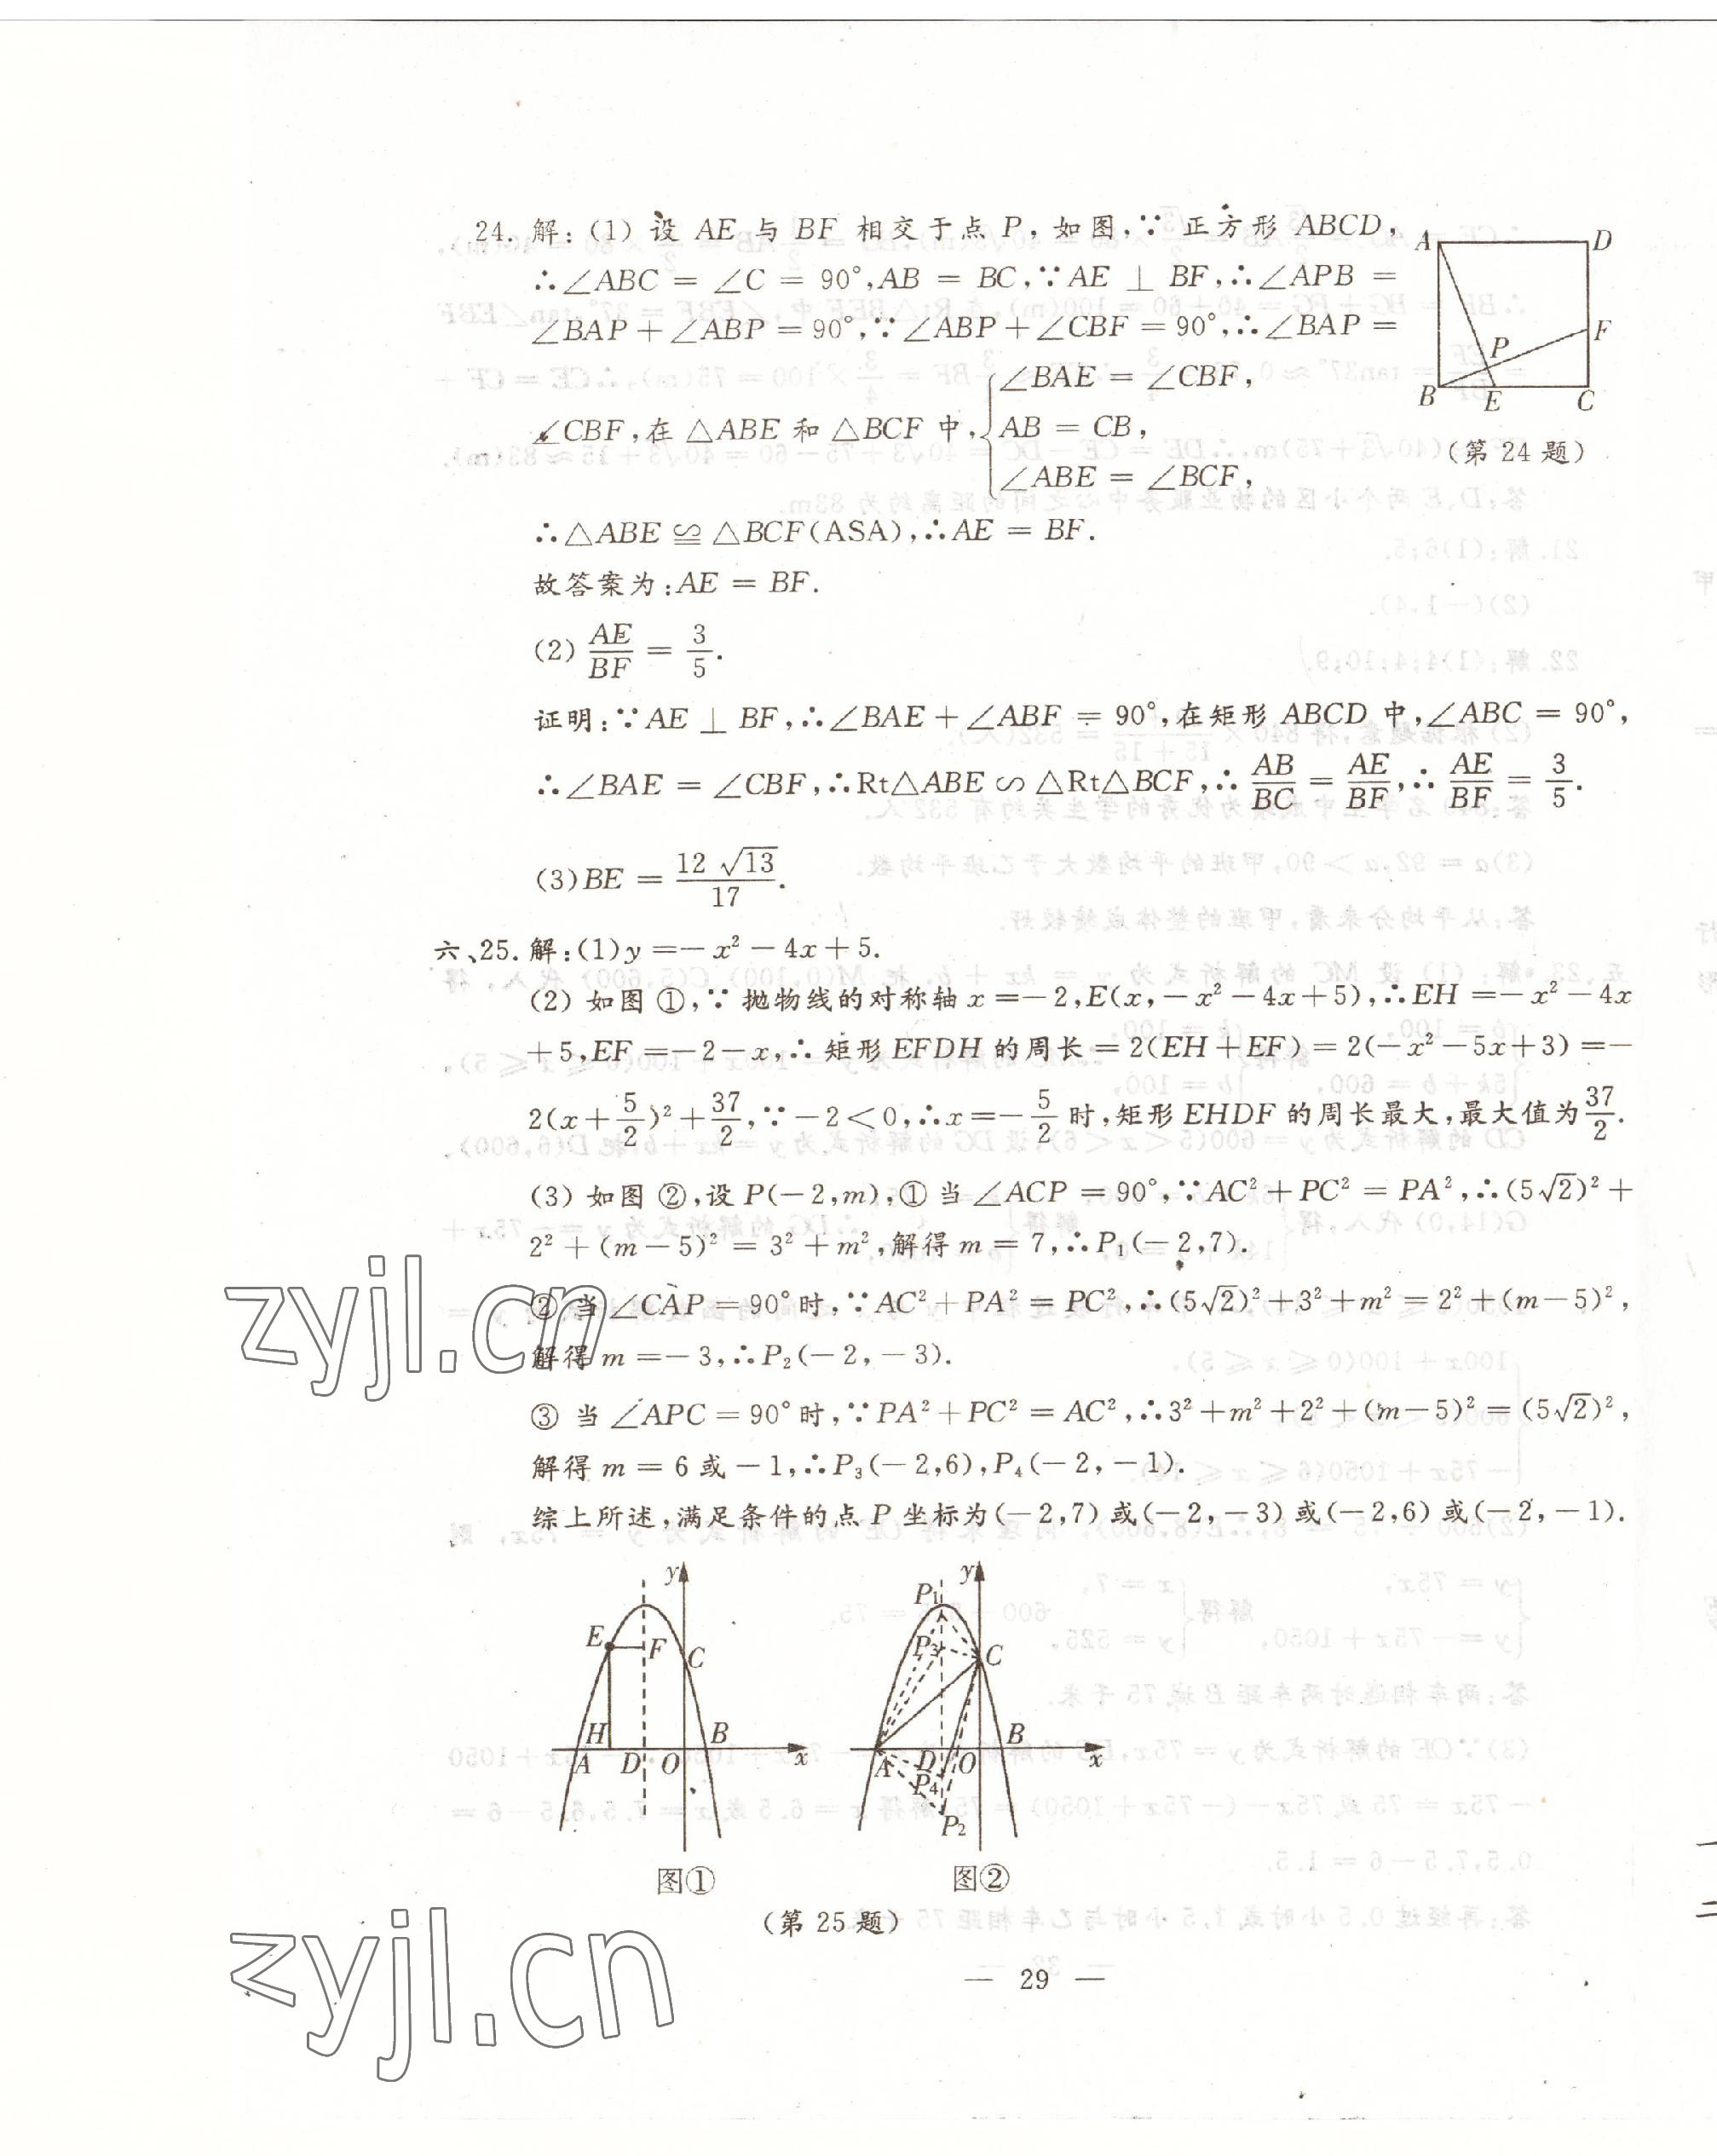 24. 解:(1) 设 AE 与 BF 相交于点 P, 如图,∵ 正方形 ABCD,
∴∠ABC = ∠C = 90°,AB = BC,∵AE ⊥ BF,∴∠APB =
∠BAP + ∠ABP = 90°,∵∠ABP + ∠CBF = 90°,∴∠BAP =
∠CBF,在 △ABE 和 △BCF 中,{∠BAE = ∠CBF,
AB = CB,
∠ABE = ∠BCF,
∴△ABE ≌ △BCF(ASA),∴AE = BF.
故答案为:AE = BF.
(2) AE/BF = 3/5.
证明:∵AE ⊥ BF,∴∠BAE + ∠ABF = 90°,在矩形 ABCD 中,∠ABC = 90°,
∴∠BAE = ∠CBF,∴Rt△ABE ∽ △Rt△BCF,∴ AB/BC = AE/BF,∴ AE/BF = 3/5.
(3)BE = 12√13/17.
A
D
F
P
B
E
C
(第 24 题)
六、25. 解:(1)y =− x² − 4x + 5.
(2) 如图 ①,∵ 抛物线的对称轴 x =− 2,E(x, − x² − 4x + 5),∴EH =− x² − 4x
+ 5,EF =− 2 − x,∴ 矩形 EFDH 的周长 = 2(EH + EF) = 2(− x² − 5x + 3) =−
2(x + 5/2)² + 37/2,∵− 2 < 0,∴x =− 5/2 时,矩形 EHDF 的周长最大,最大值为 37/2.
(3) 如图 ②,设 P(− 2,m),① 当 ∠ACP = 90°,∵AC² + PC² = PA²,∴(5√2)² +
2² + (m − 5)² = 3² + m²,解得 m = 7,∴P₁(− 2,7).
② 当 ∠CAP = 90° 时,∵AC² + PA² = PC²,∴(5√2)² + 3² + m² = 2² + (m − 5)²,
解得 m =− 3,∴P₂(− 2, − 3).
③ 当 ∠APC = 90° 时,∵PA² + PC² = AC²,∴3² + m² + 2² + (m − 5)² = (5√2)²,
解得 m = 6 或 − 1,∴P₃(− 2,6),P₄(− 2, − 1).
综上所述,满足条件的点 P 坐标为(− 2,7) 或(− 2, − 3) 或(− 2,6) 或(− 2, − 1).
y
E
F
C
H
B
A
D
O
x
图①
y
P₁
P₃
C
B
A
D
O
x
P₄
P₂
图②
(第 25 题)
— 29 —
zyjl.cn
zyjl.cn